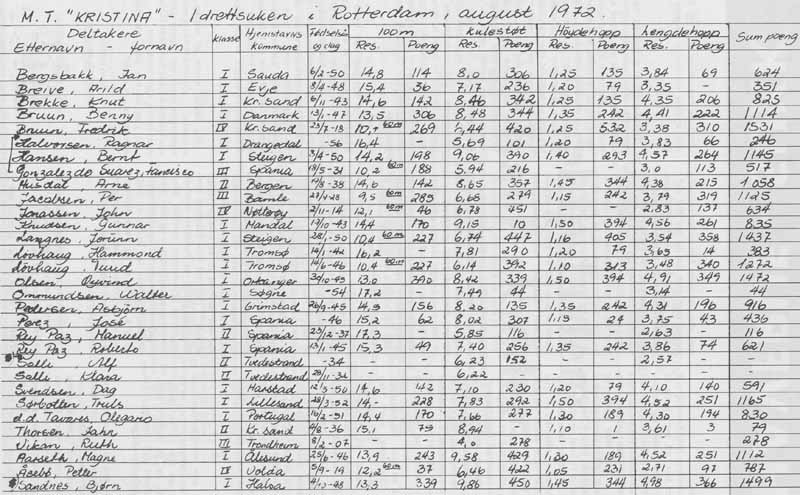 M.T. "KRISTINA" - Idrettsuken i Rotterdam, august 1972.
Deltakere Klasse Hjemstavns Fødselsår 100 m Kulestøt Høydehopp Lengdehopp Sum poeng
Etternavn - fornavn kommune og dag Res. Poeng Res. Poeng Res. Poeng Res. Poeng
Bergsbakk, Jan I Sauda 6/2-50 14,8 114 8,0 306 1,25 135 3,84 69 624
Breive, Arild I Evje 3/4-48 15,4 36 7,17 236 1,20 79 3,35 - 351
Brekke, Knut I Kr.sand 6/11-43 14,6 142 8,46 342 1,25 135 4,35 206 825
Bruun, Benny I Danmark 13/1-47 13,5 306 8,48 344 1,35 242 4,41 222 1114
Bruun, Fredrik IV Kr.sand 23/7-18 60m 269 420 1,25 532 3,38 310 1531
Halvorsen, Ragnar I Drangedal -56 16,4 - 5,69 101 1,20 79 3,83 66 246
Hansen, Bernt I Steigen 3/4-50 14,2 198 9,06 390 1,40 293 4,57 264 1145
Gonzalez do Suarez, Francisco III Spania 13/5-31 10,2 60m 188 5,94 216 - - 3,0 113 517
Husdal, Arne II Bergen 19/8-38 14,6 142 8,65 357 1,45 344 4,38 215 1058
Jacobsen, Per III Bamle 27/4-28 9,5 60m 285 6,68 279 1,15 242 3,79 319 1125
Jonassen, John IV Nøtterøy 2/11-14 12,1 60m 46 6,78 451 - - 2,83 137 634
Knudsen, Gunnar I Mandal 17/10-43 14,4 170 9,15 10 1,50 394 4,56 261 835
Langnes, Jorunn I Steigen 28/1-50 10,4 60m 227 6,74 447 1,16 405 3,54 358 1437
Løvhaug, Hammond I Tromsø 14/1-42 16,2 - 7,81 290 1,20 79 3,65 14 383
Løvhaug, I Tromsø 14/6-46 10,4 60m 227 6,14 392 1,10 313 3,48 340 1272
Olsen, Øyvind I Orkanger 30/10-45 13,0 390 8,42 339 1,50 394 4,91 349 1472
Ommundsen, Walter I Søgne -54 17,2 - 7,49 44 - - 3,14 - 44
Pedersen, Asbjörn I Grimstad 26/9-45 14,5 156 8,20 135 1,35 242 4,31 196 916
Perez, José I Spania -46 15,2 62 8,02 307 1,15 24 3,75 43 436
Rey Paz, Manuel II Spania 23/12-37 17,3 - 5,85 116 - - 2,63 - 116
Rey Paz Roberto I Spania 13/1-45 15,3 49 7,40 256 1,35 242 3,86 74 621
Salli, Alf II Tvedestrand -34 - - 6,23 152 - - 2,57 -
Salli, Klara II Tvedestrand 28/11-32 - - 6,22
Svendsen, Dag I Harstad 12/3-50 14,6 142 7,10 230 1,20 79 4,10 140 591
Sørbotten, Truls I Lillesand 28/3-52 14,- 228 7,83 292 1,50 394 4,52 251 1165
d.d. Tavares, Olegario I Portugal 16/2-51 14,4 170 7,66 277 1,30 189 4,30 194 830
Thorsen, Jahn II Kr.sand 4/8-36 15,1 75 8,94 - 1,10 1 3,61 3 79
Vikan, Ruth III Trondheim 8/2-07 - - 4,0 278 - - - - 278
Aarseth, Magne I Ålesund 25/6-46 13,9 243 9,58 429 1,30 189 4,52 251 1112
Åsebø, Petter IV Volda 5/9-19 12,2 60m 37 6,46 422 1,05 231 2,71 97 787
Sandnes, Bjørn I Halsa 4/12-48 13,3 339 9,86 450 1,45 344 4,98 366 1499